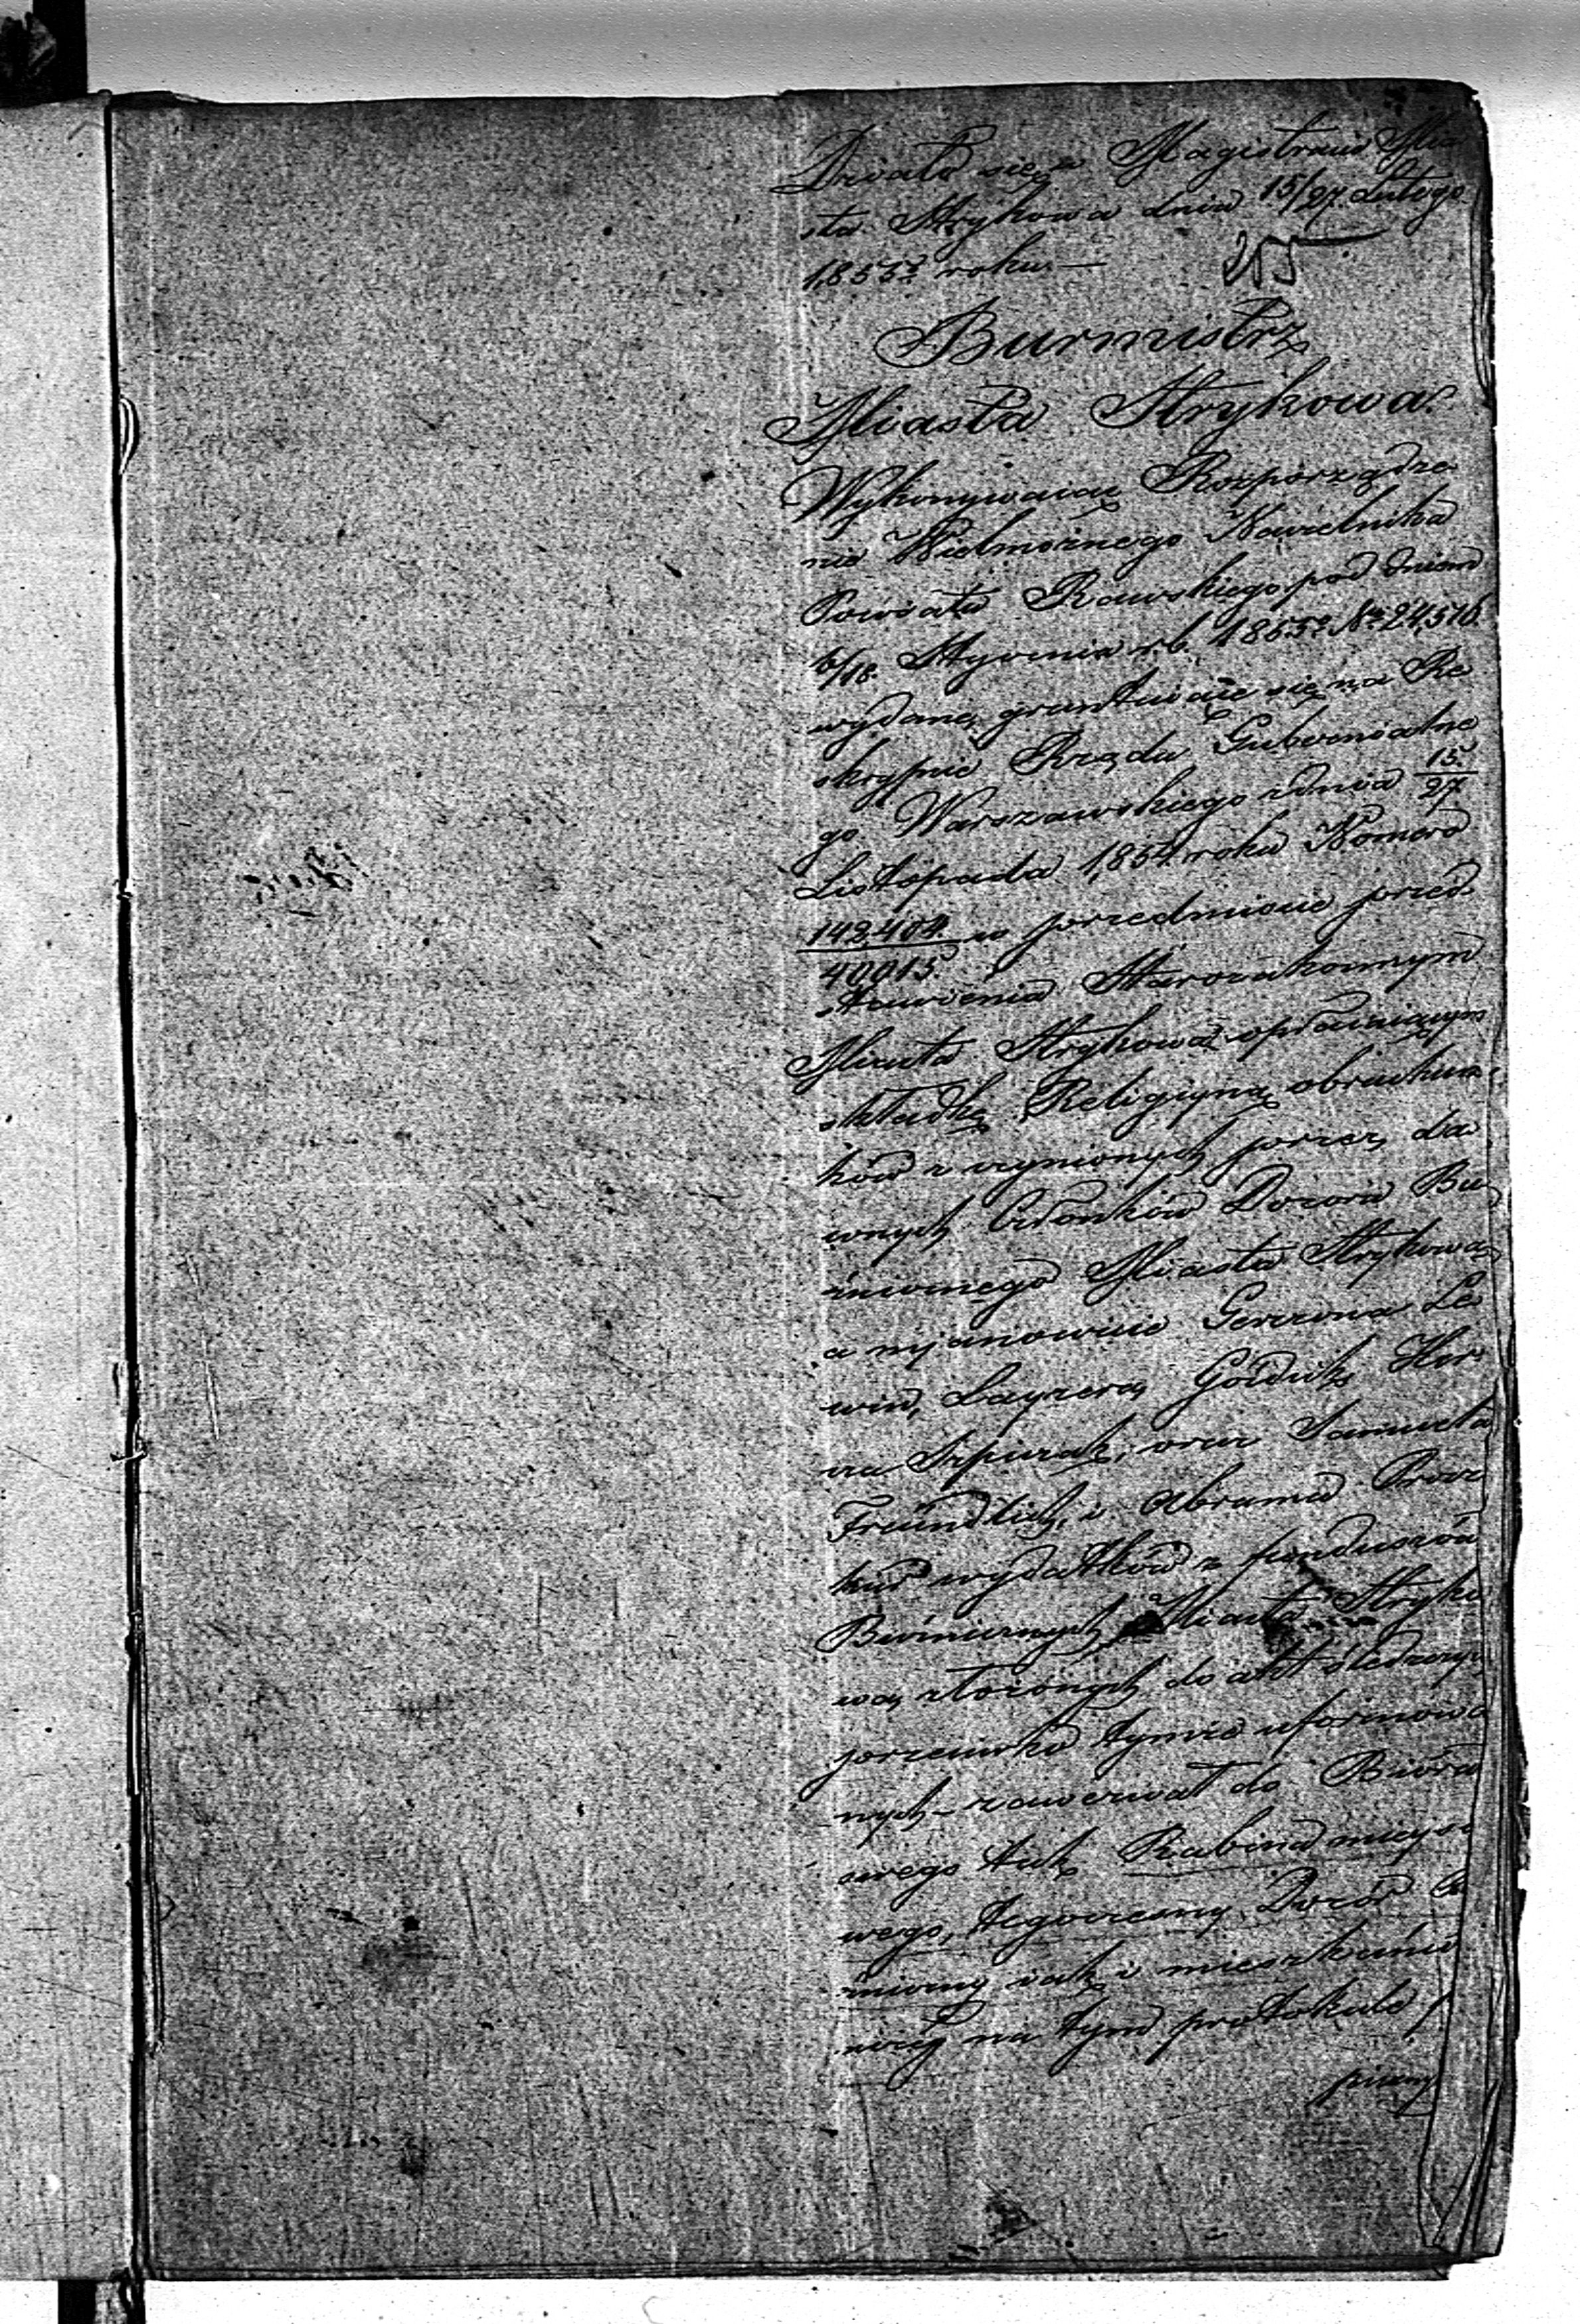 Działo się w Magistracie Mia
sta Strykowa dnia 15/27 Lutego
1855º roku —
255
Burmistrz
Miasta Strykowa.
Wykonywaiąc Rozporządze
nie Wielmożnego Naczelnika
Powiatu Rawskiego pod dniem
6/18. Stycznia r.b. 1855º Nr 24,516.
wydane, gruntuiące się na Re
skrypcie Rządu Gubernialne
go Warszawskiego z dnia 15/27
Listopada 1,854 roku Numero
142,404/40,015 w przedmiocie przed
stawienia Starozakonnym
Miasta Strykowa opłacaiącym
składkę Religiyną obrachun
ków z czynionych przez da
wnych Członków Dozoru Bu
żniczego Miasta Strykowa,
a mianowicie Gerszona Le
win, Layzera Góldich Her
Szpiral, oraz Samuela
Freündlich, i Abrama
wydatków z funduszów
Bóżniczych Miasta Stryko
wa, złożonych do akt śledczych
przeciwko tymże uformowa
nych — zawezwał do Bióra
swego tak Rabina mieysco
wego, tegoczesny Dozór Bó
żniczny iak i mieszkańców
na tym protokule